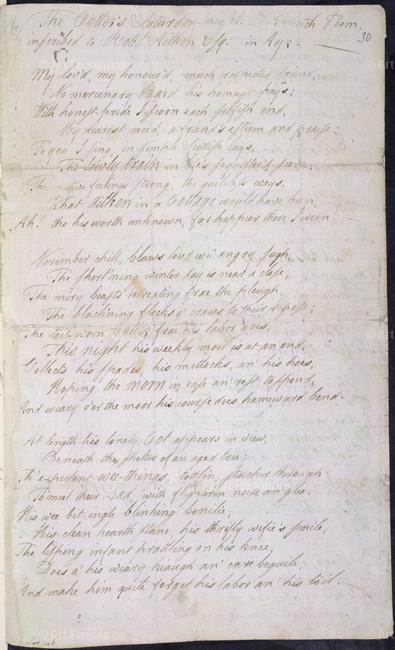 The Cotter's Saturday night. A Scotch Poem,
inscribed to Rob.t Aitken Esq. in Ayr. 30
My lov'd, my honour'd, much respected friend,
No mercenary Bard his homage pays;
With honest pride I scorn each selfish end,
My dearest meed, a friend's esteem and praise:
To you I sing in simple Scotish lays,
The lowly train in life's sequester'd scene;
The native feelings strong, the guileless ways,
What Aitken in a Cottage would have been,
Ah! tho his worth unknown, far happier there I ween.
November chill, blaws loud wi' angry sugh,
The short'ning winter day is near a close,
The miry beasts retreating frae the pleugh
The black'ning flocks o' craws to their repose:
The toil-worn Cotter frae his labor goes,
This night his weekly moil is at an end,
Collects his spades, his mattocks, an' his hoes,
Hoping the morn in ease an' rest to spend,
And weary o'er the moor his course does hameward bend.
At length his lonely Cot appears in view,
Beneath the shelter of an aged tree;
Th' expectant wee-things, todlin, stacher through
To meet their Dad, with flighterin noise an' glee.
His wee-bit ingle blinking bonilie,
His clean hearth-stane, his thrifty wifie's smile,
The lisping infant prattling on his knee,
Does a' his weary kiaugh an' care beguile,
And make him quite forget his labor an' his toil.
Art Resource